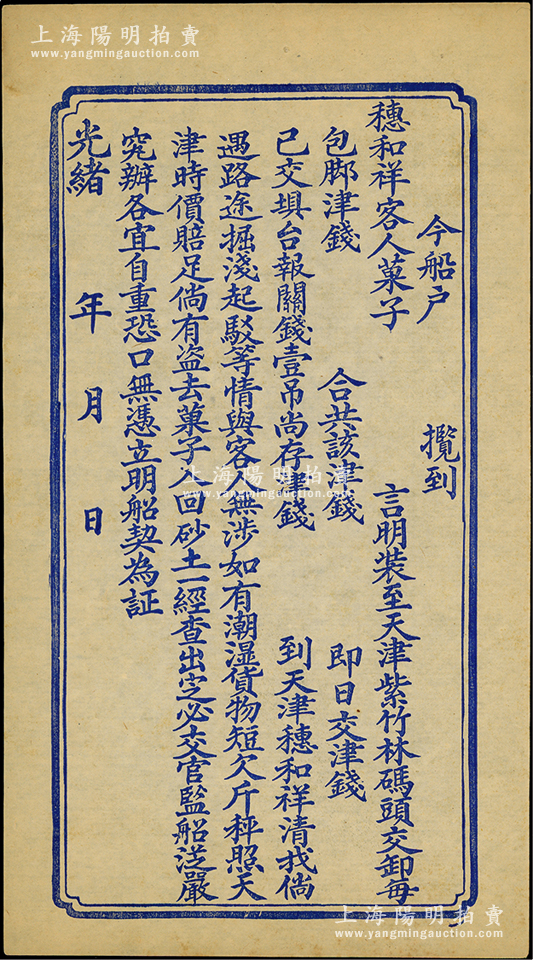 上海陽明拍賣
www.yangmingauction.com
今船户 攬到
穗和祥客人菓子 言明裝至天津紫竹林碼頭交卸每
包脚津錢 合共該津錢 即日交津錢
已交埧台報關錢壹吊尚存津錢 到天津穗和祥清找倘
遇路途掘淺起駁等情與客人無涉如有潮湿貨物短欠斤秤照天
津時價賠足倘有盗去菓子入回砂土一經查出定必交官監船泛嚴
究辦各宜自重恐口無憑立明船契為証
光緒 年 月 日
上海陽明拍賣
www.yangmingauction.com
上海陽明拍賣
www.yangmingauction.com